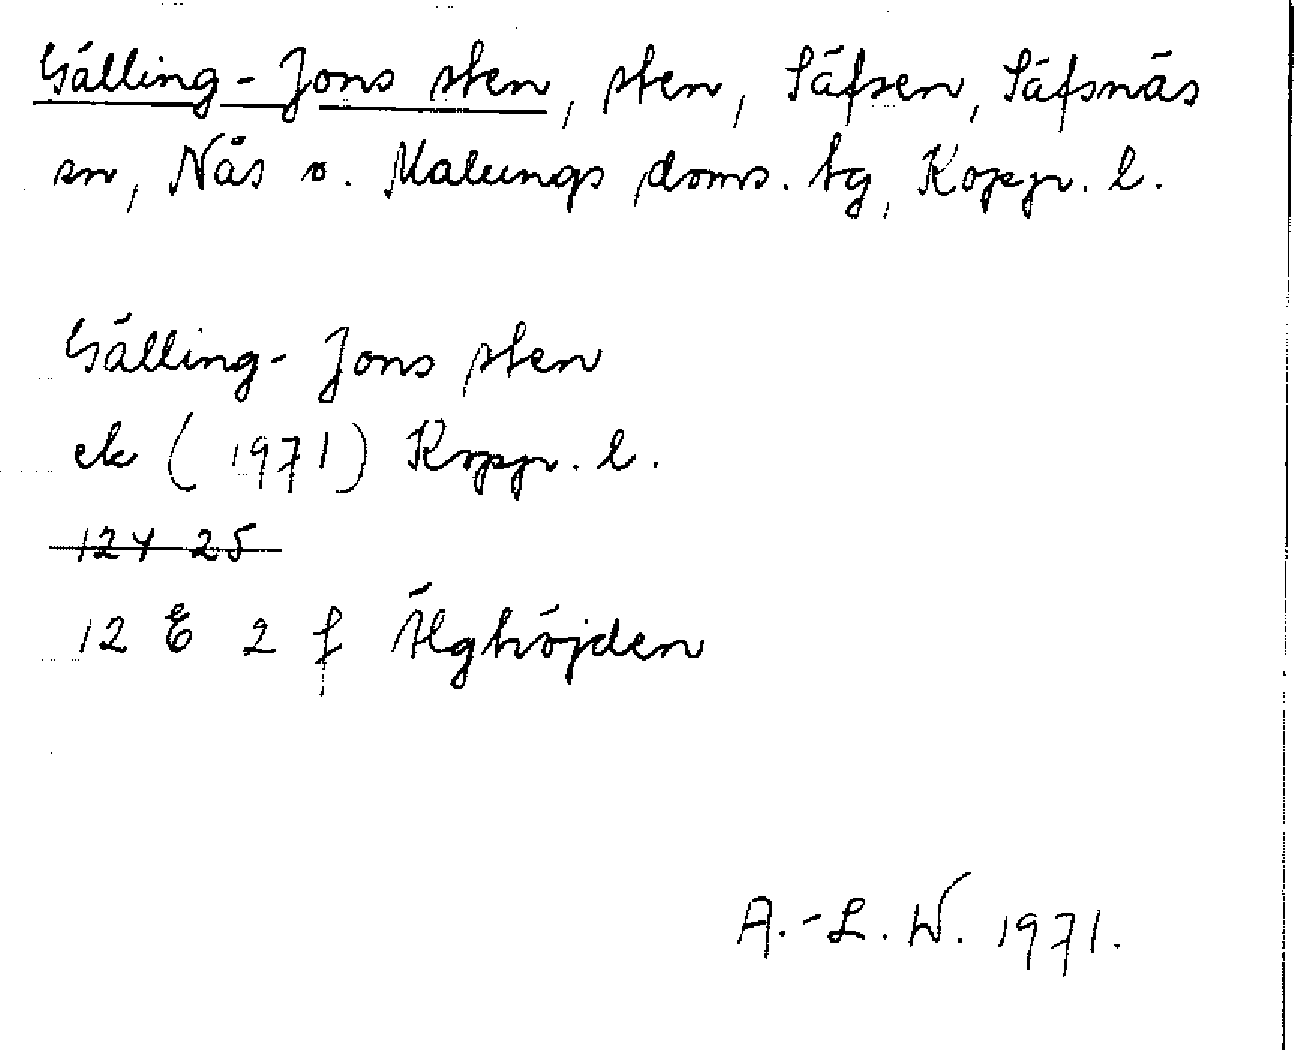 Gälling-Jons sten, sten, Säfsen, Säfsnäs
sn, Nås o. Malungs doms. tg, Koppr. l.
Gälling-Jons sten
ek (1971) Koppr. l.
12Y 25
12 E 2 f Älghöjden
A.-L. W. 1971.